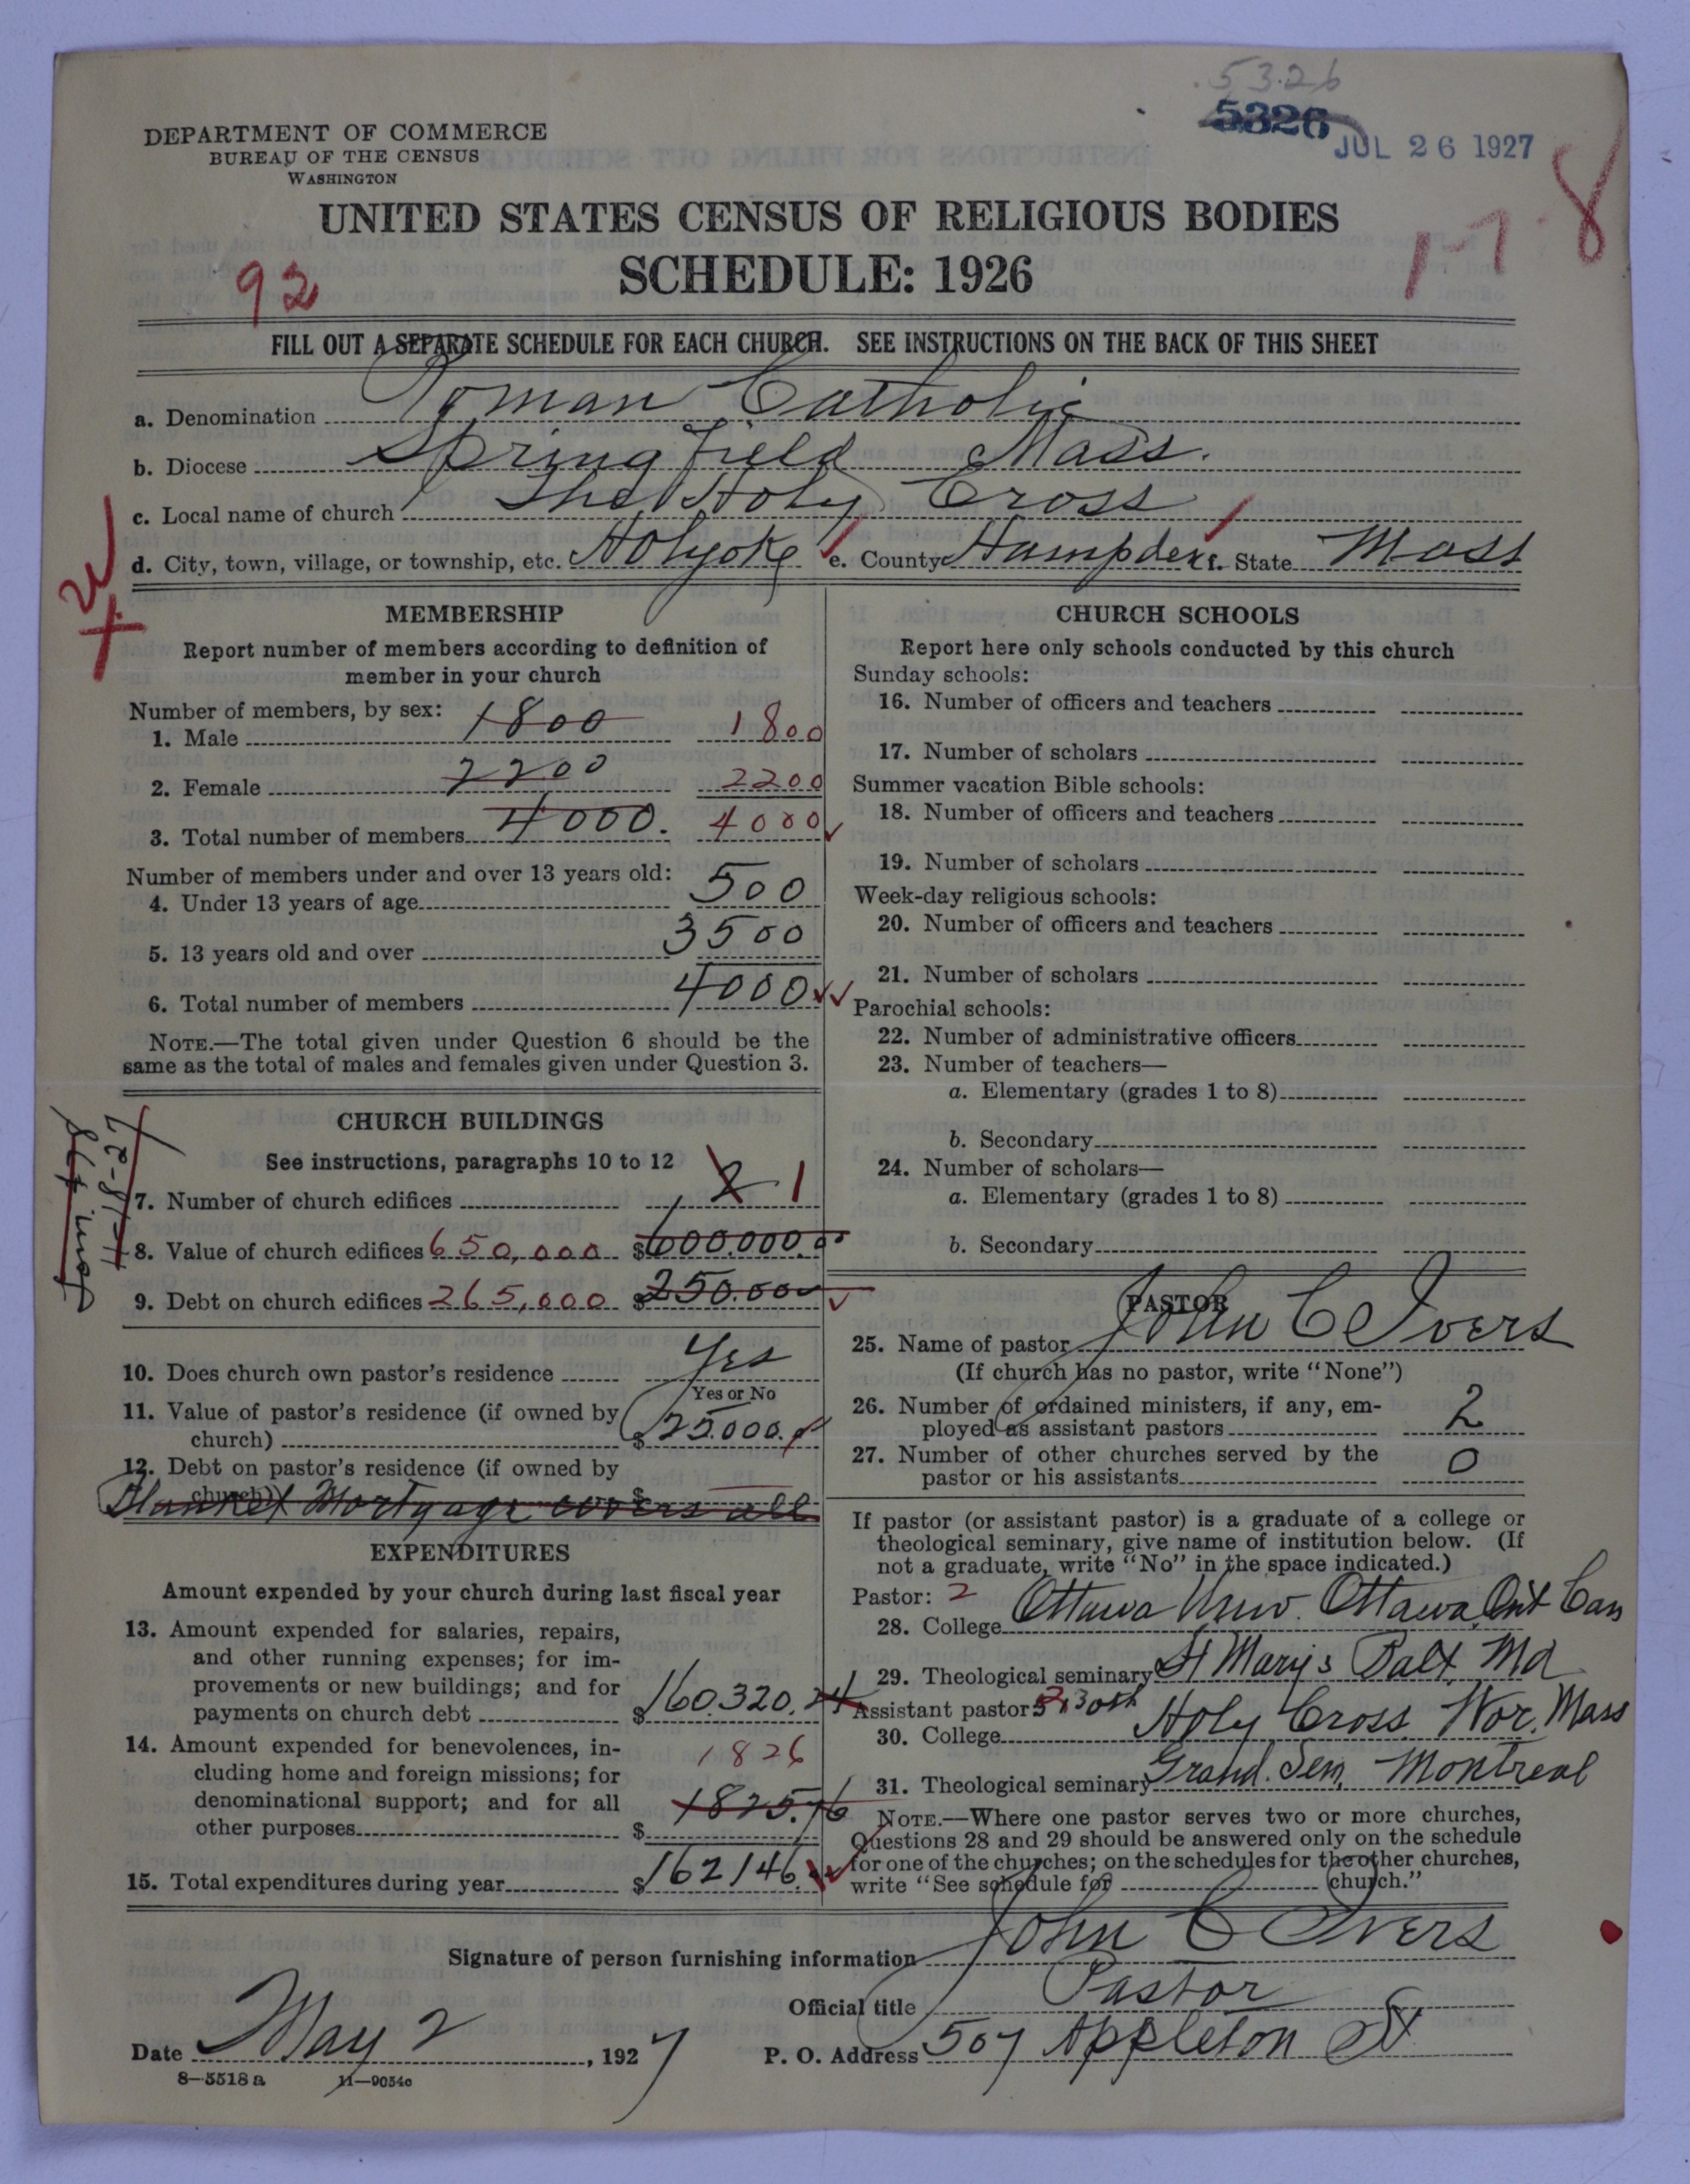 53.26
5326
JUL 26 1927
DEPARTMENT OF COMMERCE
BUREAU OF THE CENSUS
WASHINGTON
UNITED STATES CENSUS OF RELIGIOUS BODIES
SCHEDULE: 1926
92
17.8
FILL OUT A SEPARATE SCHEDULE FOR EACH CHURCH. SEE INSTRUCTIONS ON THE BACK OF THIS SHEET
a. Denomination Roman Catholic
b. Diocese Springfield Mass.
c. Local name of church The Holy Cross
d. City, town, village, or township, etc. Holyoke e. County Hampden f. State Mass
MEMBERSHIP
Report number of members according to definition of
member in your church
Number of members, by sex:
1. Male 1800 1800
2. Female 2200 2200
3. Total number of members 4000. 4000
Number of members under and over 13 years old:
4. Under 13 years of age 500
5. 13 years old and over 3500
6. Total number of members 4000
NOTE.—The total given under Question 6 should be the
same as the total of males and females given under Question 3.
CHURCH BUILDINGS
See instructions, paragraphs 10 to 12
7. Number of church edifices 2 1
8. Value of church edifices 650,000 $600.000.00
9. Debt on church edifices 265,000 $250.000
11-18-27
10. Does church own pastor's residence Yes
Yes or No
11. Value of pastor's residence (if owned by
church) $25.000.
12. Debt on pastor's residence (if owned by
church) $
Blanket Mortgage covers all
EXPENDITURES
Amount expended by your church during last fiscal year
13. Amount expended for salaries, repairs,
and other running expenses; for im-
provements or new buildings; and for
payments on church debt $160.320.24
14. Amount expended for benevolences, in-
cluding home and foreign missions; for
denominational support; and for all
other purposes $
1826
1825.76
15. Total expenditures during year $162146.
CHURCH SCHOOLS
Report here only schools conducted by this church
Sunday schools:
16. Number of officers and teachers
17. Number of scholars
Summer vacation Bible schools:
18. Number of officers and teachers
19. Number of scholars
Week-day religious schools:
20. Number of officers and teachers
21. Number of scholars
Parochial schools:
22. Number of administrative officers
23. Number of teachers—
a. Elementary (grades 1 to 8)
b. Secondary
24. Number of scholars—
a. Elementary (grades 1 to 8)
b. Secondary
PASTOR
25. Name of pastor John C Ivers
(If church has no pastor, write "None")
26. Number of ordained ministers, if any, em-
ployed as assistant pastors 2
27. Number of other churches served by the
pastor or his assistants 0
If pastor (or assistant pastor) is a graduate of a college or
theological seminary, give name of institution below. (If
not a graduate, write "No" in the space indicated.)
Pastor: 2
28. College Ottawa Univ. Ottawa, Ont Can
29. Theological seminary St Marys Balt. Md
Assistant pastors Both
30. College Holy Cross Wor. Mass
31. Theological seminary Grand. Sem. Montreal
NOTE.—Where one pastor serves two or more churches,
Questions 28 and 29 should be answered only on the schedule
for one of the churches; on the schedules for the other churches,
write "See schedule for church."
Signature of person furnishing information John C Ivers
Official title Pastor
Date May 2, 1927 P. O. Address 507 Appleton St
8-5518 a 11-9054c